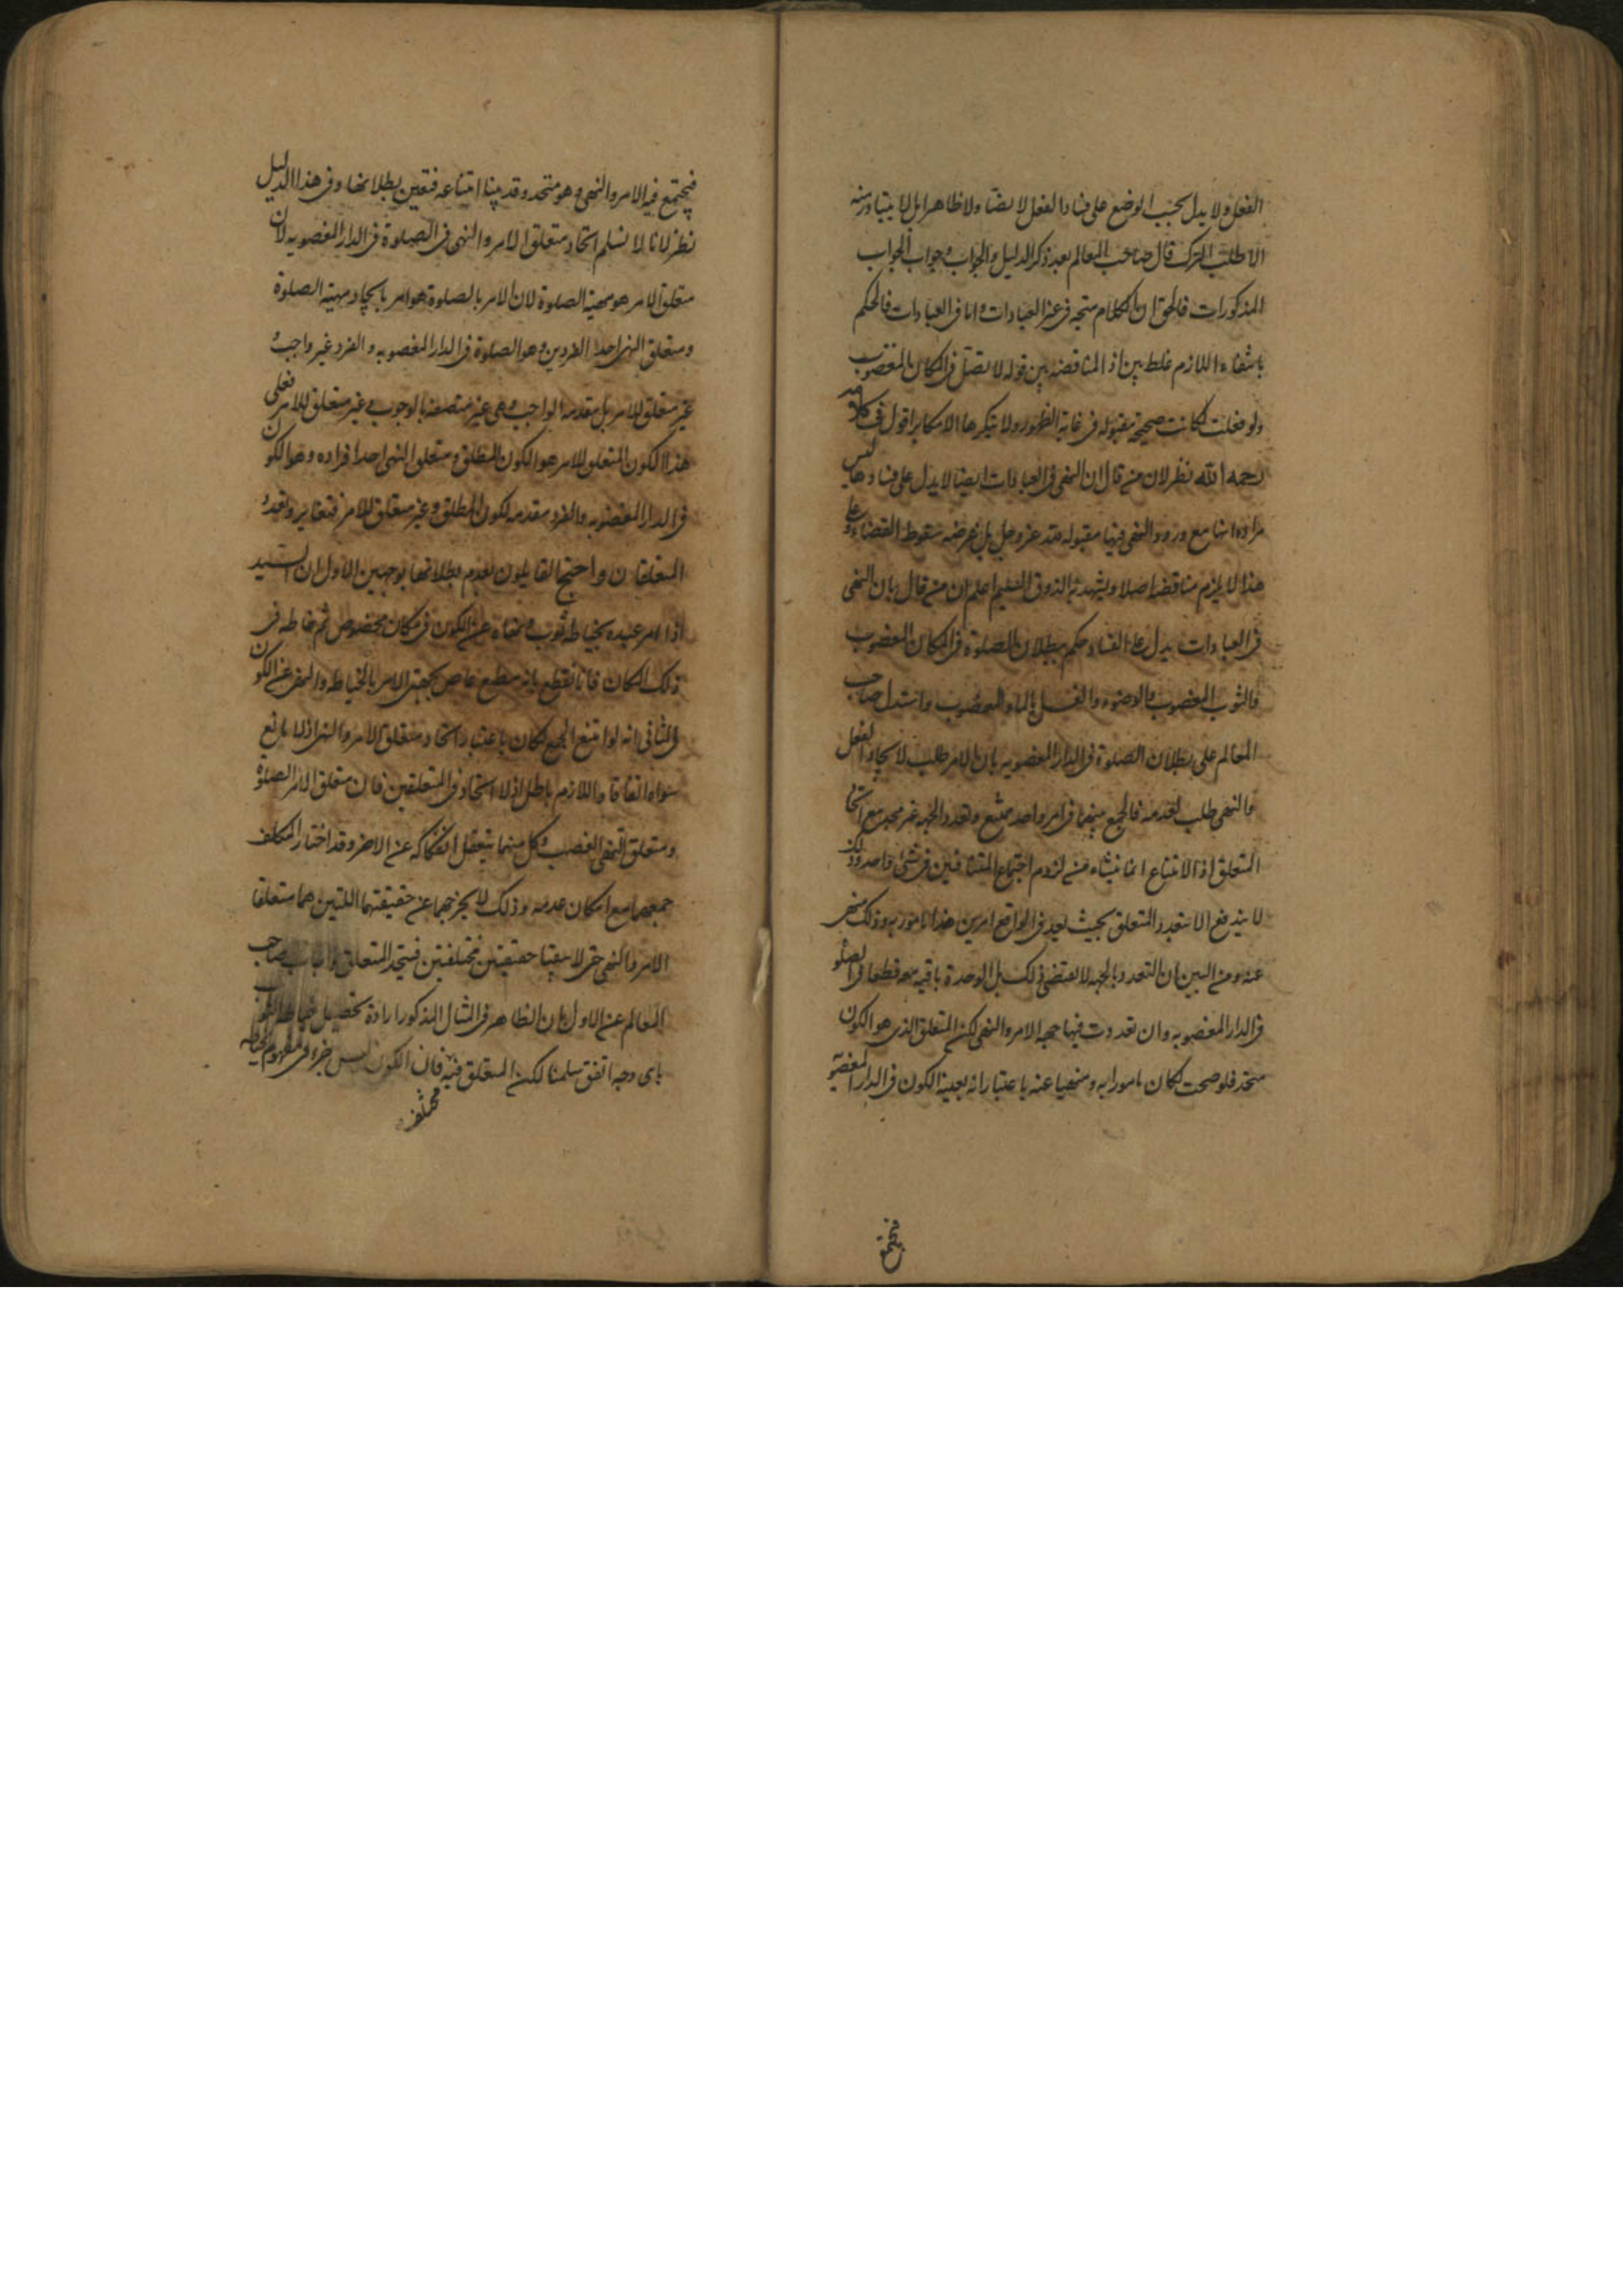 الفعل ولا يدل بحسب الوضع على فساد الفعل لا نصا ولا ظاهرا بل لا يتبادر منه
الا طلب الترك قال صاحب المعالم بعد ذكر الدليل والجواب وجواب الجواب
المذكورات فالحق ان الكلام متجه فى غير العبادات واما فى العبادات فالحكم
بانتفاء اللازم غلط بين اذ المناقضة بين قوله لا تصل فى المكان المغصوب
ولو فعلت لكانت صحيحة مقبولة فى غاية الظهور ولا ينكرها الا مكابر اقول فى كلامه
رحمه الله نظر لان من قال ان النهى فى العبادات ايضا لا يدل على فسادها ليس
مراده انها مع ورود النهى فيها مقبولة عند عز وجل بل غرضه سقوط القضاء وعلى
هذا لا يلزم مناقضة اصلا ويشهد به الذوق السليم اعلم ان من قال بان النهى
فى العبادات يدل على الفساد حكم ببطلان الصلوة فى المكان المغصوب
والثوب المغصوب والوضوء والغسل بالماء المغصوب واستدل صاحب
المعالم على بطلان الصلوة فى الدار المغصوبه بان الامر طلب لايجاد الفعل
والنهى طلب لعدمه فالجمع بينهما فى امر واحد ممتنع وتعدد الجهه غير مجد مع اتحاد
المتعلق اذ الامتناع انما ينشاء من لزوم اجتماع المتنافيين فى شئ واحد وذلك
لا يندفع الا بتعدد المتعلق بحيث يعد فى الواقع امرين هذا مامور به وذلك منهى
عنه ومن البين ان التعدد بالجهه لا يقتضى ذلك بل الوحدة باقيه معه قطعا فالصلوة
فى الدار المغصوبه وان تعددت فيها جهه الامر والنهى لكن المتعلق الذى هو الكون
متحد فلو صحت لكان مامورا به ومنهيا عنه باعتبار انه بعينه الكون فى الدار المغصوبة
فيجتمع
فيجتمع فيه الامر والنهى وهو متحد وقد بينا امتناعه فتعين بطلانها وفى هذا الدليل
نظر لانا لا نسلم اتحاد متعلق الامر والنهى فى الصلوة فى الدار المغصوبه لان
متعلق الامر هو مهية الصلوة لان الامر بالصلوة هو امر بايجاد مهية الصلوة
ومتعلق النهى احد الفردين وهو الصلوة فى الدار المغصوبه والفرد غير واجب و
غير متعلق للامر بل مقدمه الواجب وهى غير متصفه بالوجوب وغير متعلق للامر فعلى
هذا الكون المتعلق للامر هو الكون المطلق ومتعلق النهى احد افراده وهو الكون
فى الدار المغصوبه والفرد مقدمه لكون المطلق وغير متعلق للامر فتغاير وتعدد
المتعلقان واحتج القايلون بعدم بطلانها بوجهين الاول ان السيد
اذا امر عبده بخياطة ثوب ونهاه عن الكون فى مكان مخصوص ثم خاطه فى
ذلك المكان فانا نقطع بانه مطيع عاص بجهتى الامر بالخياطه والنهى عن الكون
والثانى انه لو امتنع الجمع لكان باعتبار اتحاد متعلق الامر والنهى اذ لا مانع
سواه اتفاقا واللازم باطل اذ لا اتحاد فى المتعلقين فان متعلق الامر الصلوة
ومتعلق النهى الغصب وكل منهما يتعقل انفكاكه عن الاخر وقد اختار المكلف
جمعهما مع امكان عدمه وذلك لا يخرجهما عن حقيقتهما اللتين هما متعلقا
الامر والنهى حتى لا يبقيا حقيقتين مختلفتين فيتحد المتعلق واجاب صاحب
المعالم عن الاول بان الظاهر فى المثال المذكور ارادة تحصيل خياطة الثوب
باى وجه اتفق سلمنا لكن المتعلق فيه فان الكون ليس جزء فى مفهوم الخياطه
مختلف